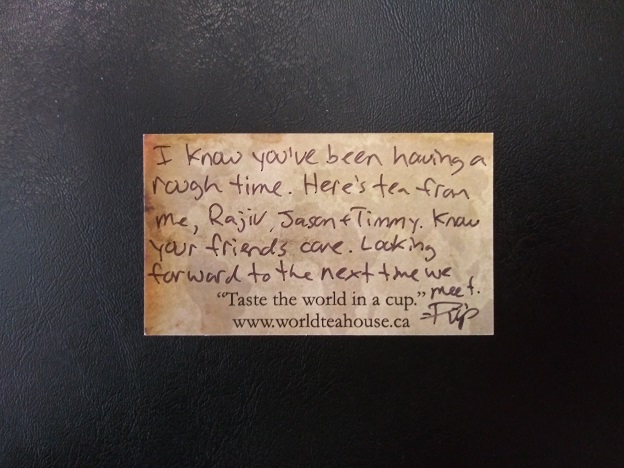 I know you've been having a
rough time. Here's tea from
me, Rajiv, Jason + Timmy. Know
your friends care. Looking
forward to the next time we
meet.
"Taste the world in a cup."
www.worldteahouse.ca